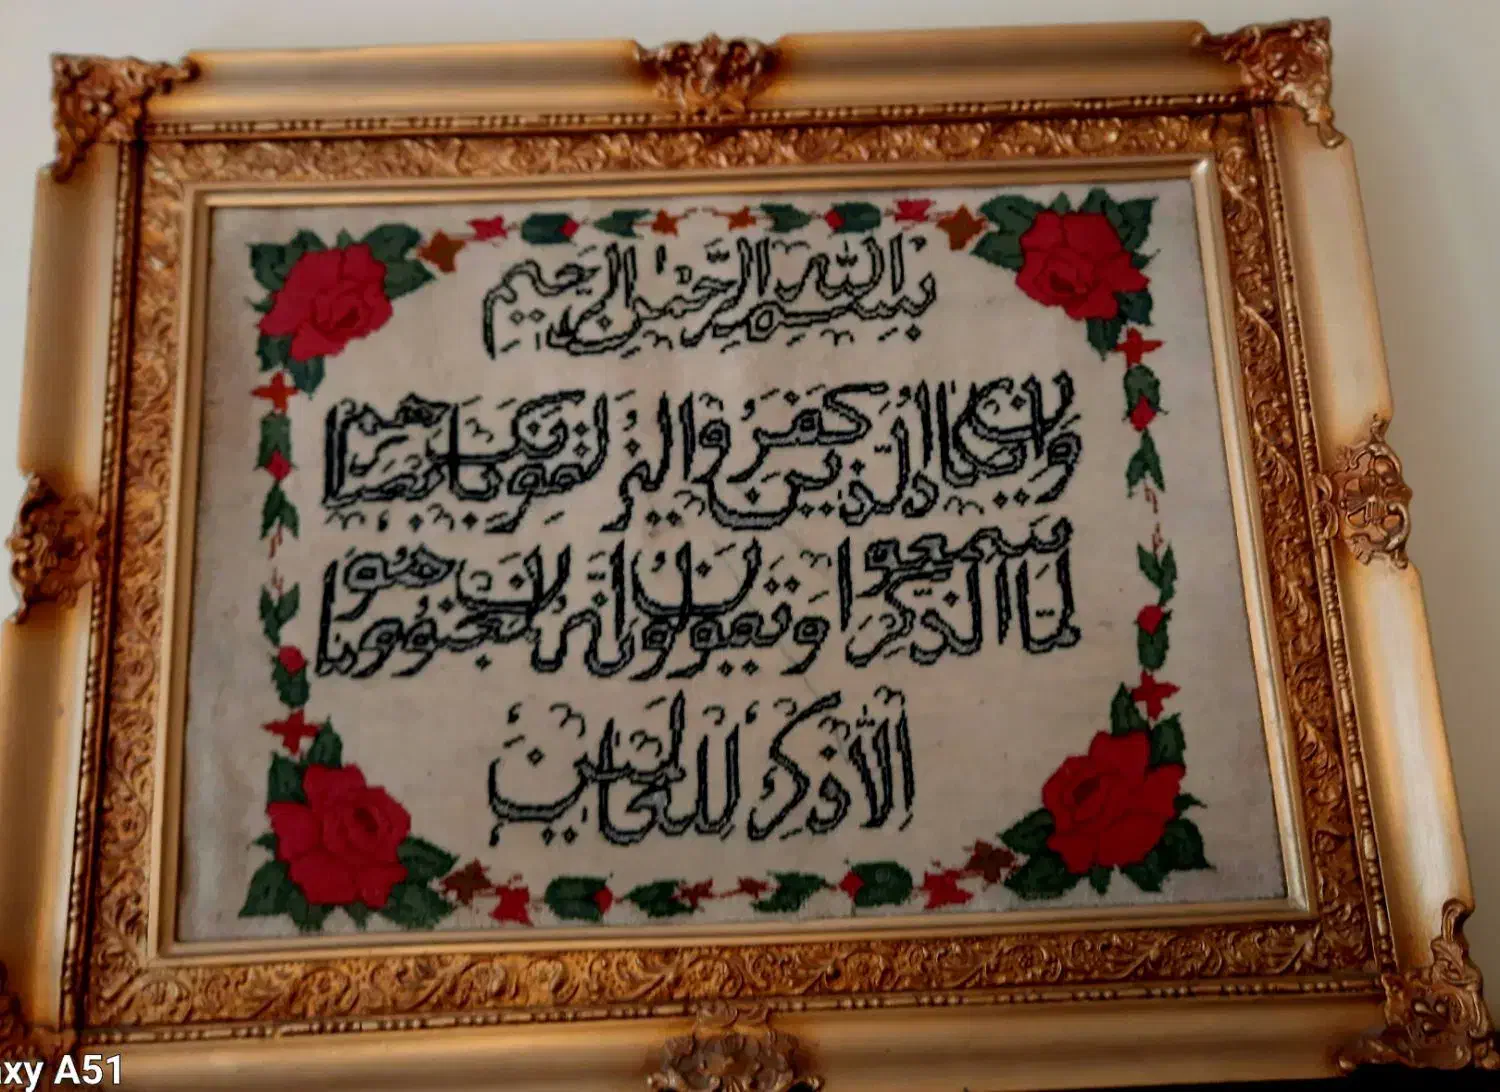 بِسْمِ اللهِ الرَّحْمٰنِ الرَّحِيمِ
وَإِن يَكَادُ الَّذِينَ كَفَرُوا لَيُزْلِقُونَكَ بِأَبْصَارِهِمْ
لَمَّا سَمِعُوا الذِّكْرَ وَيَقُولُونَ إِنَّهُ لَمَجْنُونٌ وَمَا هُوَ
إِلَّا ذِكْرٌ لِلْعَالَمِينَ
axy A51